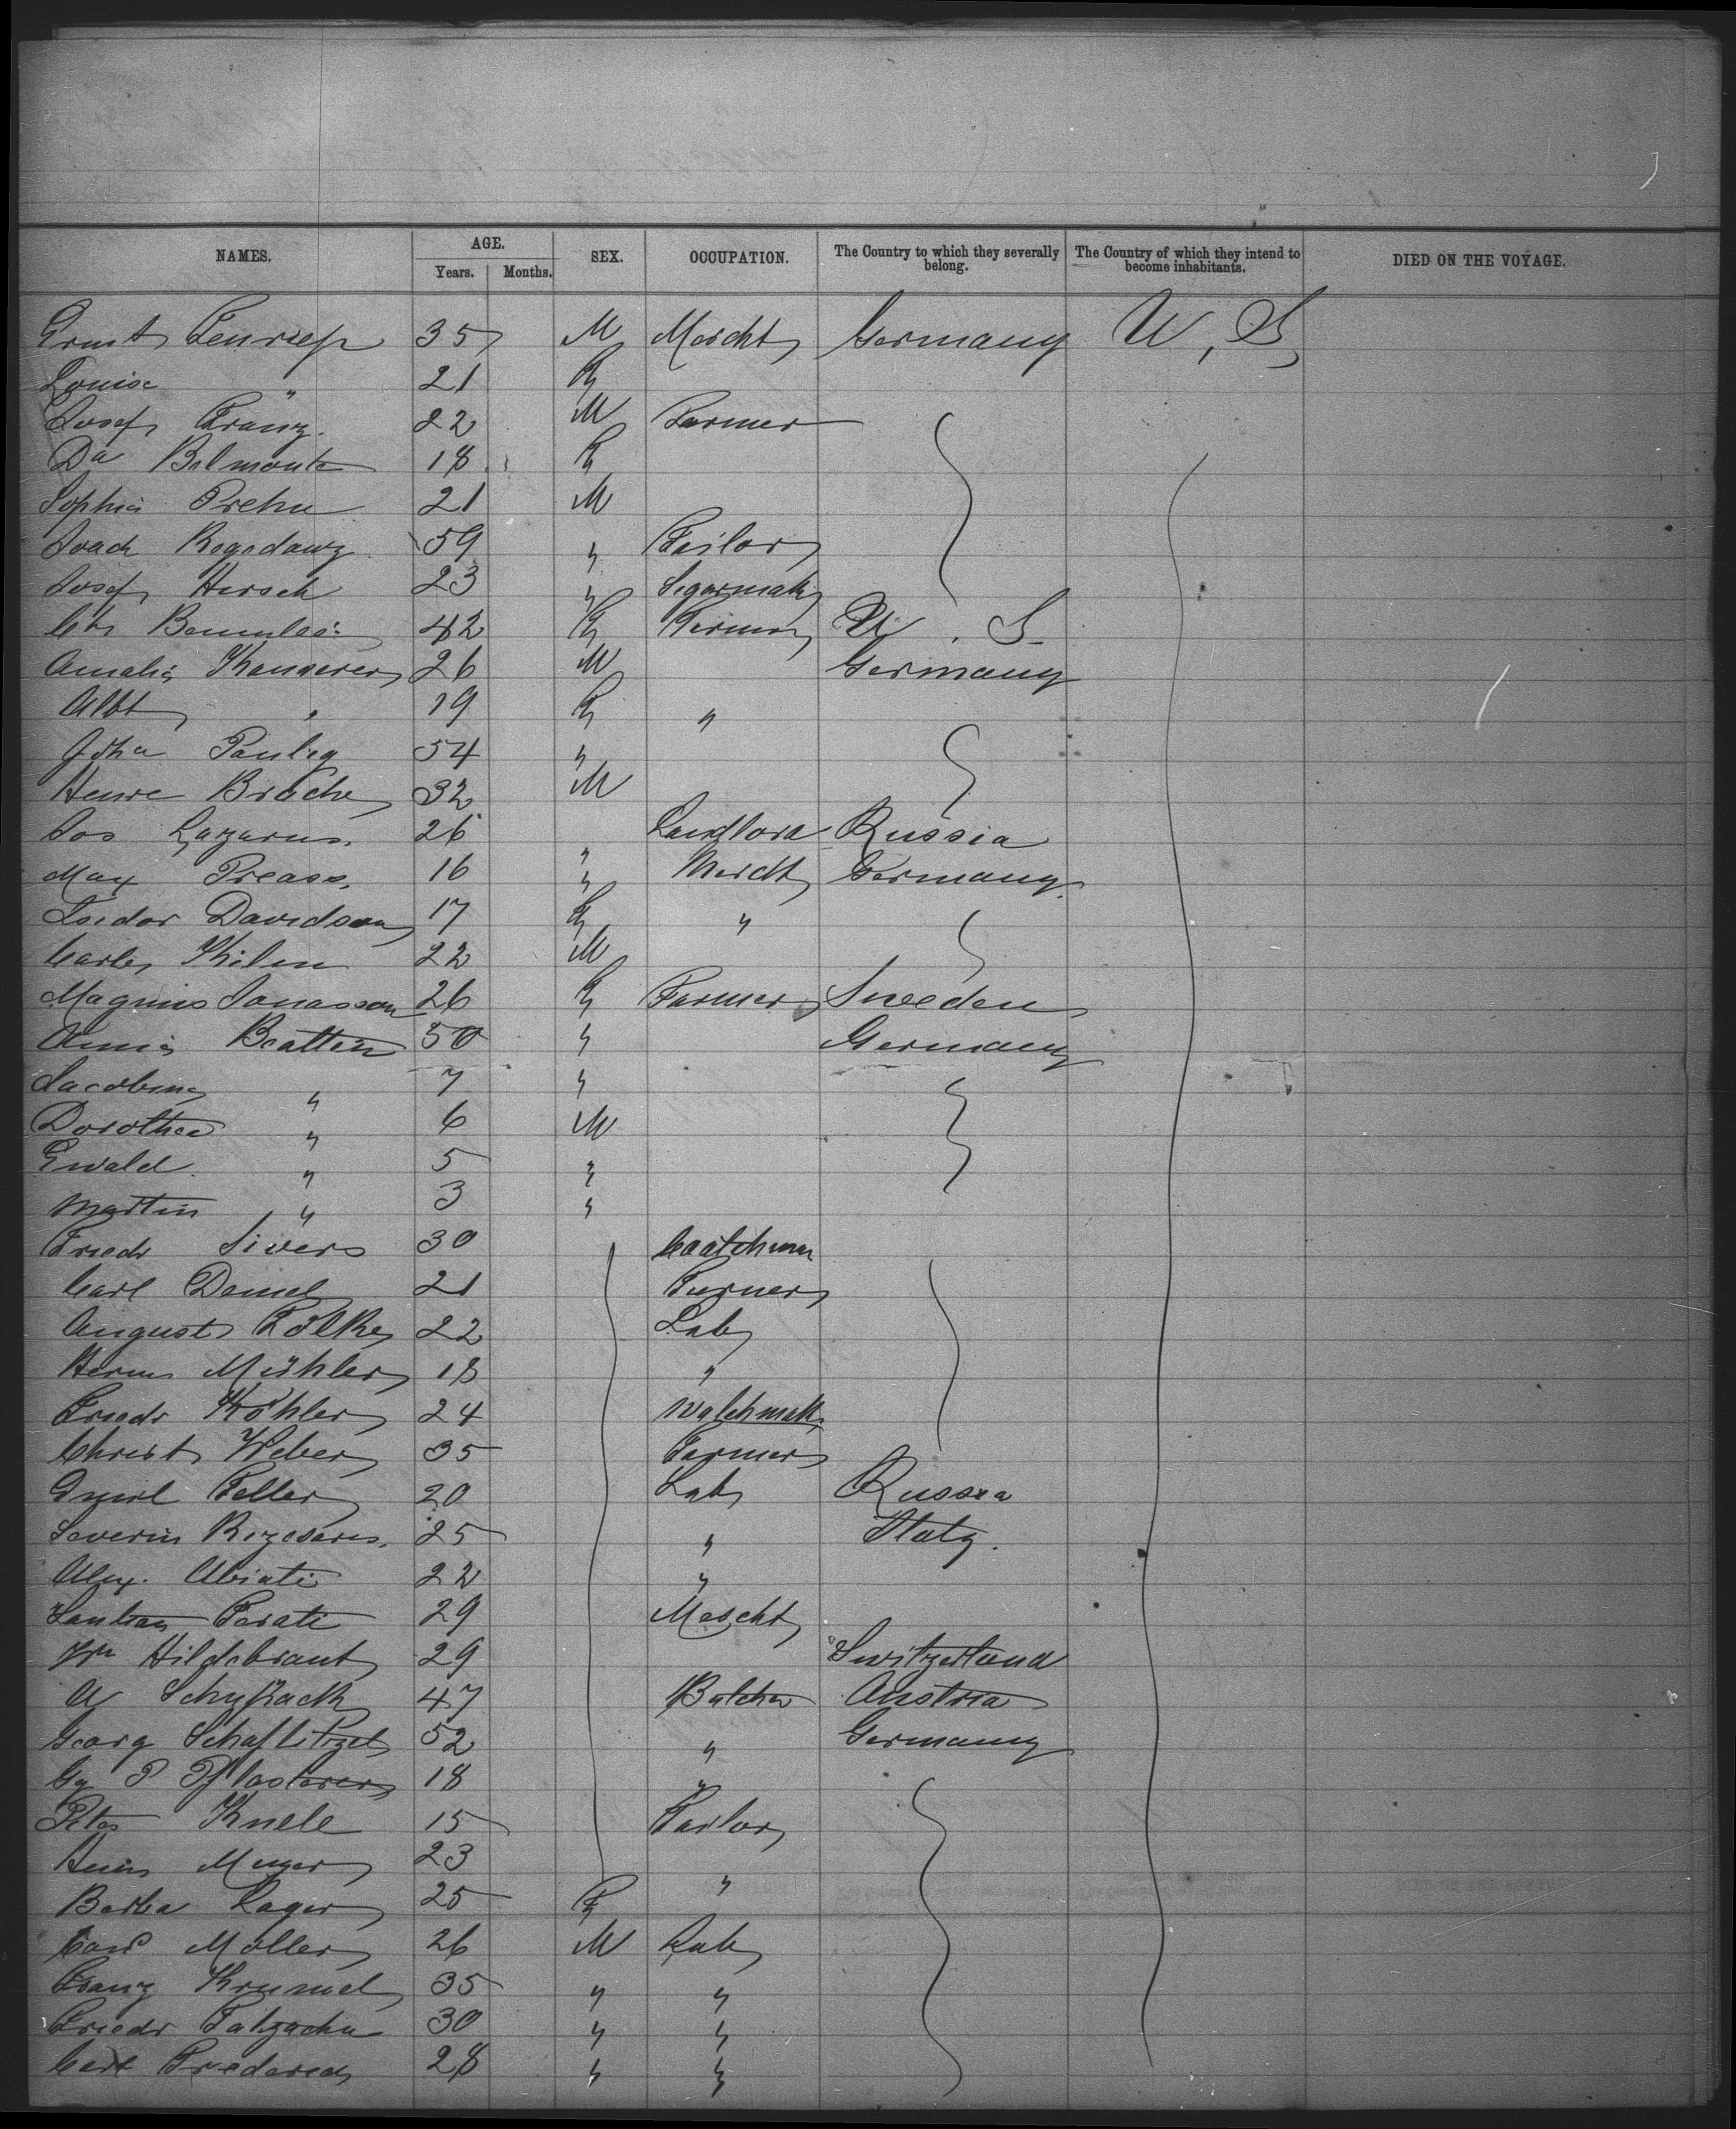 NAMES. AGE. Years. Months. SEX. OCCUPATION. The Country to which they severally belong. The Country of which they intend to become inhabitants. DIED ON THE VOYAGE.
Ernst 35 M Mercht Germany U, S,
Louise " 21 F
Josef Franz. 22 M Farmer
Da Belmonte 18 F
Sophia Prehn 21 M
Joach Regedanz 59 " Tailor
Josef Hirsch 23 " Segarmak
Chs 42 F Farmer U. S.
Amalia 26 M Germany
Albt " 19 F "
Joha Pauleg 54 "
Henre Brache 32 M
Jos Lazarus. 26 Landlord Russia
Max Preass. 16 " Mercht Germany
Isidor Davidson 17 F "
Carl Thilen 22 M
Magnus Jonasson 26 F Farmer Sweeden
Anna Beatten 50 " Germany
Jacobina " 7 "
Dorothea " 6 M
Ewald " 5 "
Martin " 3 "
Friedr Sivers 30 Coatchman
Carl Demel 21 Turner
August Fölke 22 Lab
Herm Mühler 18 "
Friedr Köhler 24 Watchmak
Christ Weber 35 Farmer
Emil Feller 20 Lab Russia
Severin 25 " Italy.
Alex. Abiati 22 "
Ferati 29 Mercht
Wm Hildebrant 29 Switzerland
A 47 Butcher Austria
Georg Schaflitzel 52 " Germany
Gg P Pflasterer 18 "
Peter Knele 15 Tailor
Heinr Meyer 23 "
Barba Lager 25 F
Carl Moller 26 M Lab
Franz Krumel 35 " "
Friedr 30 " "
Carl Frederich 28 " "